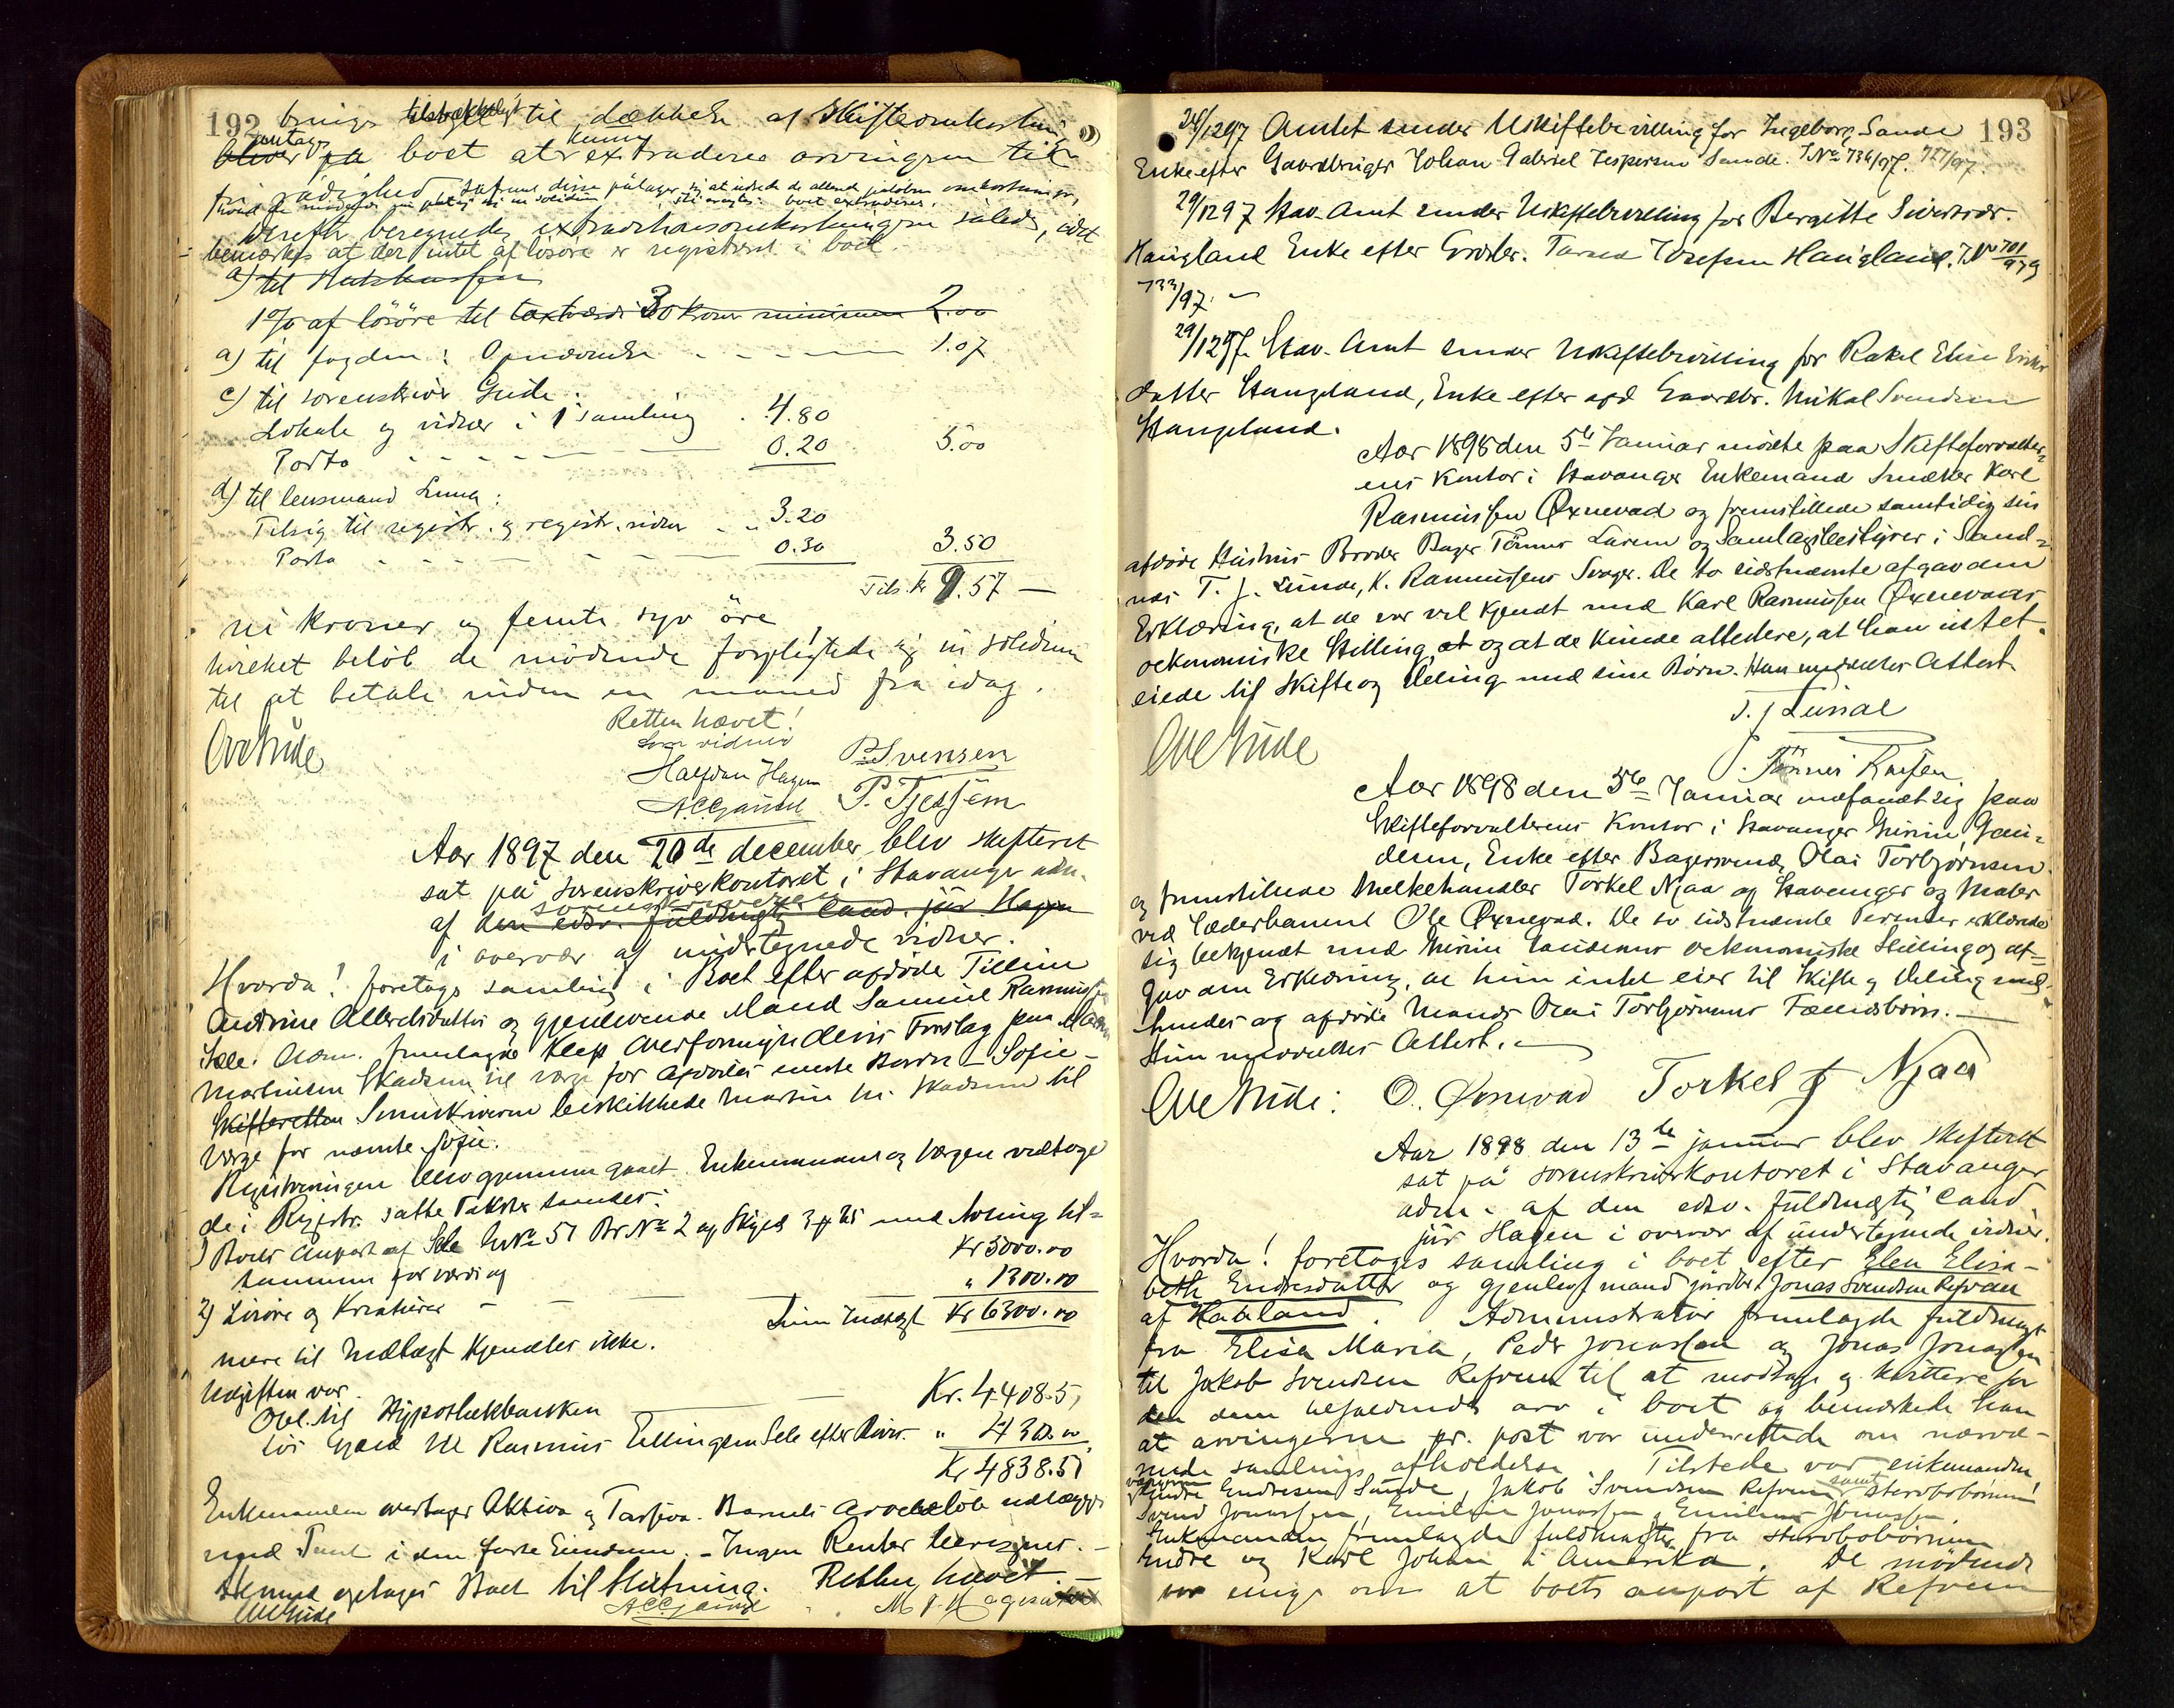 192
bringe tilstrækkeligt til dækkelse af skifteomkostnin-
antages
bliver på boet at kunne extraderes arvingerne til
fri rådighed, såfremt disse påtager sig at udrede de allerede påløbne omkostninger,
hvad de mødende
Derefter beregnedes extraditionsomkostningerne således, idet
bemærkes at der intet af løsøre er registreret i boet.
a) til Statskassen
1% af løsøre til taxtværdi 30 kroner minimum 2.00
a) til fogden: Opnævnelse 1.07
c) til sorenskriver Gude:
Lokale og vidner i 1 samling 4.80
Porto 0.20 5.00
d) til lensmand Lima:
Tilsig. til registr. og registr. vidner 3.20
Porto 0.30 3.50
Tils. kr 9.57
ni kroner og femti syv øre
hvilket beløb de mødende forpligtede sig in solidum
til at betale inden en måned fra idag.
Retten hævet!
Ove Gude
Som vidner
Halfdan Hagen P. Svensen
A.C. Gaure P. Tjessem
Aar 1897 den 20de december blev skifteret
sat på sorenskriverkontoret i Stavanger adm.
sorenskriveren
af den edsv. fuldmægtig cand. jur Hagen
i overvær af undertegnede vidner.
Hvorda! foretoges samling i Boet efter afdøde Tilline
Andrine Albertsdatter og gjenlevende Mand Samuel Rasmussen
Sele. Adm. fremlagde Klep Overformynderis Forslag paa Martin
Martinsen Skadsem til værge for afdødes eneste Barn – Sofie –
Skifteretten Sorenskriveren beskikkede Martin M. Skadsem til
værge for nævnte Sofie.
Registreringen blev gjennemgaaet. Enkemanden og Værgen vedtoge
de i Registr. satte Takster saaledes:
1) Boets Anpart af Sele GrNo 51 BrNo 2 og Skyld 3 mk 25 med Avling til-
sammen for værdi og Kr 5000.00
2) Løsøre og Kreaturer " 1300.00
Sum Indtægt Kr 6300.00
mere til Indtægt kjendtes ikke.
Udgiften var.
Obl. til Hypothekbanken Kr. 4408.51
Løs Gjæld til Rasmus Ellingsen Sele efter Revers " 430.00
Kr 4838.51
Enkemanden overtager Aktiva og Passiva. Barnets arvebeløb udlægges
med Pant i den faste Eiendom. – Ingen Renter beregnes. –
Dermed optages Boet til Slutning. Retten hævet –
Ove Gude A.C. Gaure M. J. Hageseter
193
24/1297 Amtet sender Uskiftebevilling for Ingeborg Sande
Enke efter Gaardbruger Johan Gabriel Jespersen Sande. JNo 736/97. 727/97.
29/1297 Stav. Amt sender Uskiftebevilling for Bergitte Sivertsdr.
Haugland Enke efter Grdbr. Tarald Josefsen Haugland. JNo 701/97 og
733/97. –
29/1297. Stav. Amt sender Uskiftebevilling for Rakel Elise Eriks
datter Stangeland, Enke efter afd Gaardbr. Mikal Svendsen
Stangeland.
Aar 1898 den 5te Januar mødte paa Skifteforvalter-
ens Kontor i Stavanger Enkemand Snedker Karl
Rasmussen Øxnevad og fremstillede samtidig sin
afdøde Hustrus Broder Bager Tønnes Larsen og Samlagsbestyrer i Sand-
nes T. J. Lunde, K. Rasmussens Svoger. De to sidstnævnte afgav den
Erklæring, at de var vel kjendt med Karl Rasmussen Øxnevads
oekonomiske Stilling, at og at de kunde attestere, at han intet
eiede til Skifte og Deling med sine Børn. Han meddeltes Attest.
T. J. Lunde
Ove Gude
Tønnes Larsen
Aar 1898 den 5te Januar indfandt sig paa
Skifteforvalterens Kontor i Stavanger Gurine Gau-
denn, Enke efter Bagersvend Olai Torbjørnsen
og fremstillede Melkehandler Torkel Njaa og Stavanger og Maler
ved Jæderbanen Ole Øxnevad. De to sidstnævnte Personer erklærede
sig bekjendt med Gurine Gaudenns oekonomiske Stilling og af-
gav den Erklæring, at hun intet eier til Skifte og Deling med
hendes og afdøde Mands Olai Torbjørnsens Fællesbørn. –
Hun meddeltes Attest. –
Ove Gude: O. Øxnevad Torkel J Njaa
Aar 1898 den 13te januar blev skifteret
sat på sorenskriverkontoret i Stavanger
adm. af den edsv. fuldmægtig cand.
jur Hagen i overvær af undertegnede vidner.
Hvorda! foretoges samling i boet efter Elen Elisa-
beth Endresdatter og gjenlev. mand gårdbr. Jonas Svendsen Refvem
af Høiland. Administrator fremlagde fuldmagt
fra Elisa Maria, Peder Jonassen og Jonas Jonassen
til Jakob Svendsen Refvem til at modtage og kvittere for
den dem tilfaldende arv i boet og bemærkede han
at arvingerne pr. post var underrettede om nærvæ-
rende samlings afholdelse. Tilstede var enkemanden,
værgerne Endre Endresen Sunde, Jakob Svendsen Refvem samt sterbobørnene
Svend Jonassen, Emilie Jonassen, Emilius Jonassen.
Enkemanden fremlagde fuldmagter fra sterbobørnene
Endre og Karl Johan i Amerika. De mødende
var enige om at boets anpart af Refvem